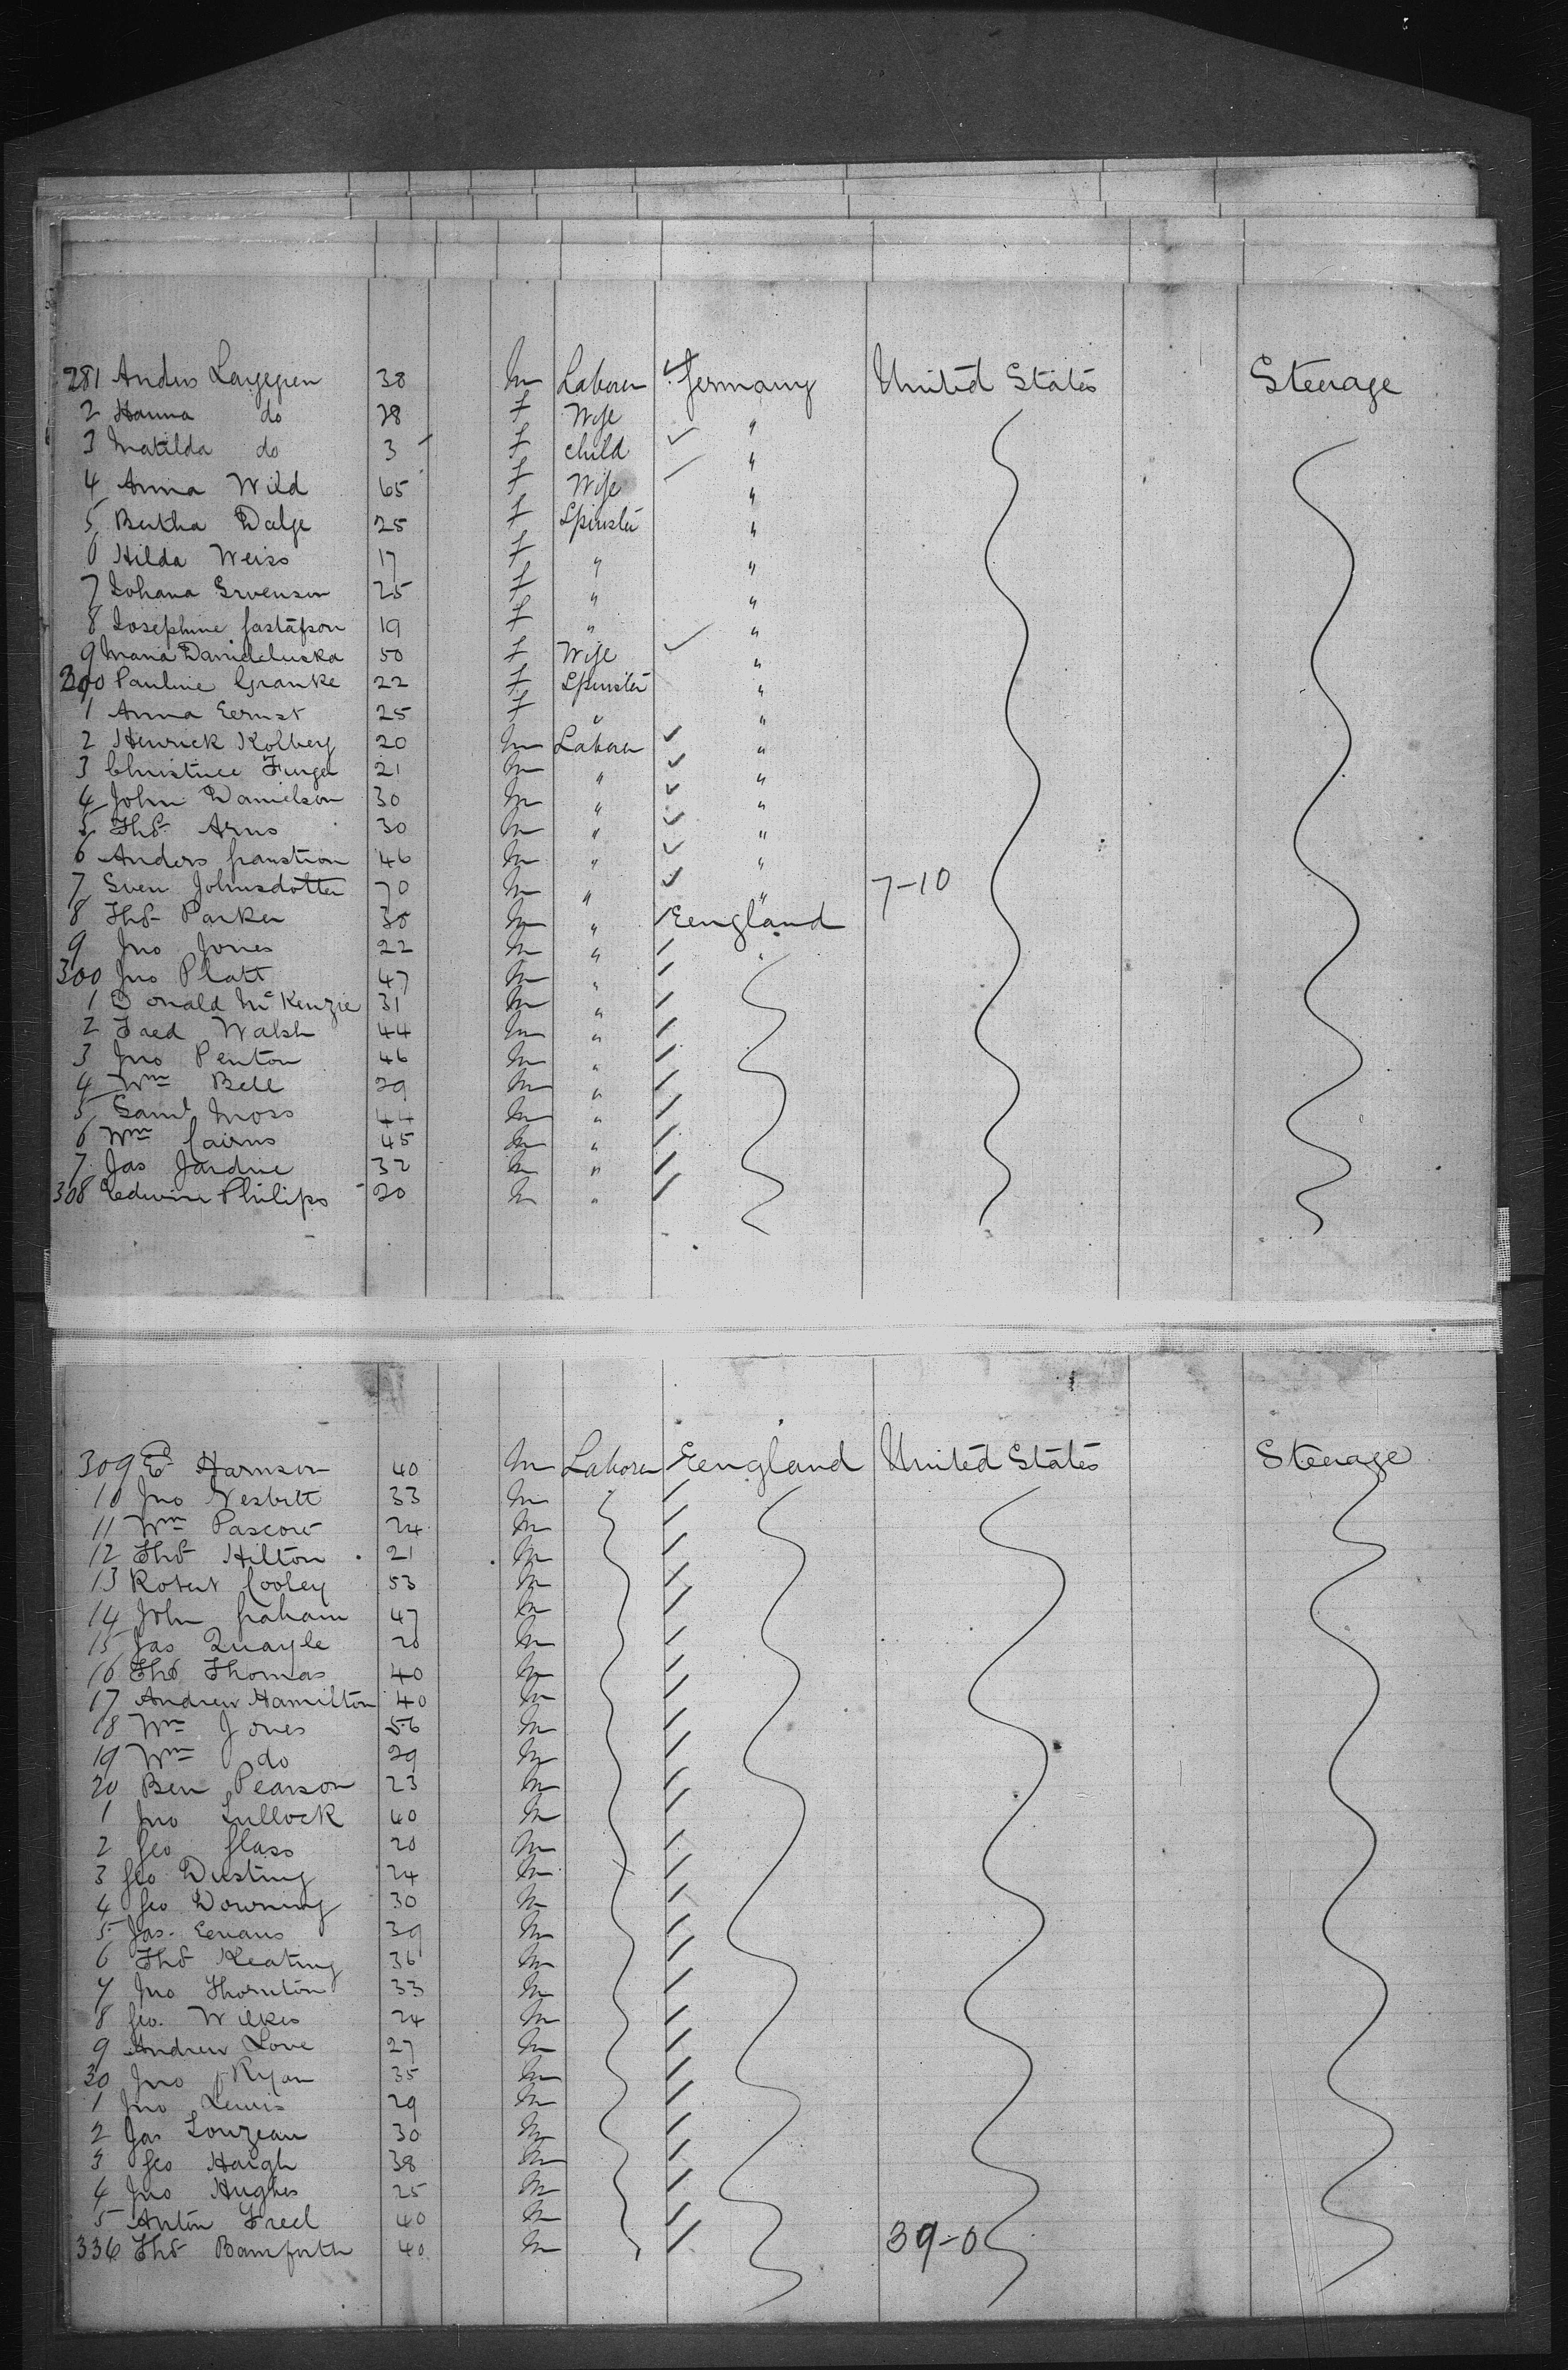 281 Andus Laygren 38 M Laborer Germany United States Steerage
2 Hanna do 28 F Wife "
3 Matilda do 3 F child "
4 Anna Wild 65 F Wife "
5 Bertha Dalge 25 F Spinster "
6 Hilda Weiss 17 F " "
7 Johana Srvenson 25 F " "
8 Josephine Gastafson 19 F " "
9 Maria 50 F Wife "
290 Pauline Granke 22 F Spinster "
1 Anna Eernst 25 F " "
2 Henrick Kolberg 20 M Laborer "
3 Christine Funger 21 M " "
4 John Danielson 30 M " "
5 Thos Arns 30 M " "
6 Anders 46 M " "
7 Sven Johnsdotter 70 M " " 7-10
8 Thos Parker 30 M " Eengland
9 Jno Jones 22 M " "
300 Jno Platt 47 M "
1 Donald McKenzie 31 M "
2 Fred Walsh 44 M "
3 Jno Penton 46 M "
4 Wm Bell 29 M "
5 Saml Moss 44 M "
6 Wm Cairns 45 M "
7 Jas Jardine 32 M "
308 Eedwin Philips 20 M "
309 E Harrison 40 M Laborer Eengland United States Steerage
10 Jno Nesbitt 33 M
11 Wm Pascow 24 M
12 Thos Hilton 21 M
13 Robert Cooley 53 M
14 John Graham 47 M
15 Jas Quayle 20 M
16 Thos Thomas 40 M
17 Andrew Hamilton 40 M
18 Wm Jones 56 M
19 Wm do 29 M
20 Ben Pearson 23 M
1 Jno Tullock 40 M
2 Geo Glass 20 M
3 Geo Dusting 24 M
4 Geo Downing 30 M
5 Jas. Eevans 39 M
6 Thos Keating 36 M
7 Jno Thornton 33 M
8 Geo. Wilkes 24 M
9 Andrew Love 27 M
30 Jno Ryan 35 M
1 Jno Lewis 29 M
2 Jas Louzeau 30 M
3 Geo Haigh 38 M
4 Jno Hughes 25 M
5 Anton Freel 40 M
336 Thos Bamforth 40 M 39-0